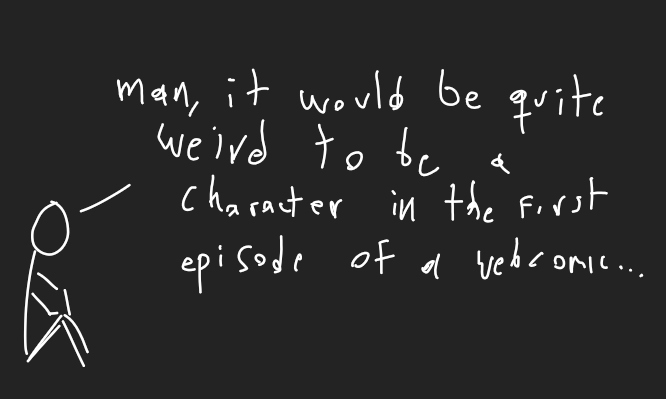 man, it would be quite
weird to be a
character in the first
episode of a webcomic...